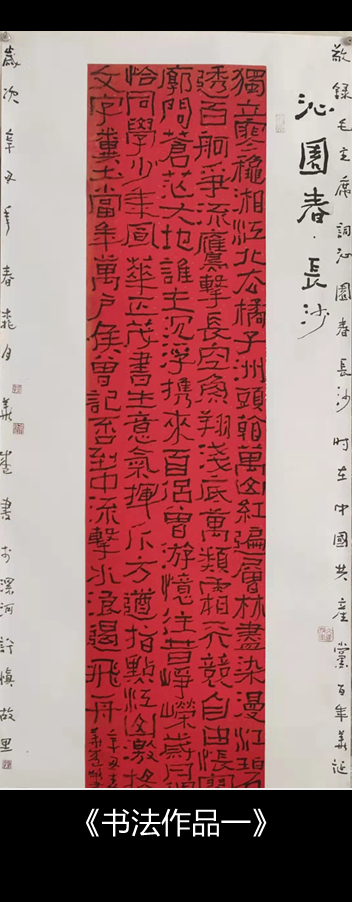 敬錄毛主席詞沁園春長沙時在中國共產黨百年華誕
沁園春·長沙
獨立寒穐湘江北去橘子洲頭看萬山紅遍層林盡染漫江碧
透百舸爭流鷹擊長空魚翔淺底萬類霜天競自由悵寥
廓問蒼茫大地誰主沉浮攜來百侶曾游憶往昔崢嶸歲月稠
恰同學少年風華正茂書生意氣揮斥方遒指點江山激揚
文字糞土當年萬戶侯曾記否到中流擊水浪遏飛舟
辛丑春
歲次辛丑年春桃月
書於漯河許慎故里
《书法作品一》